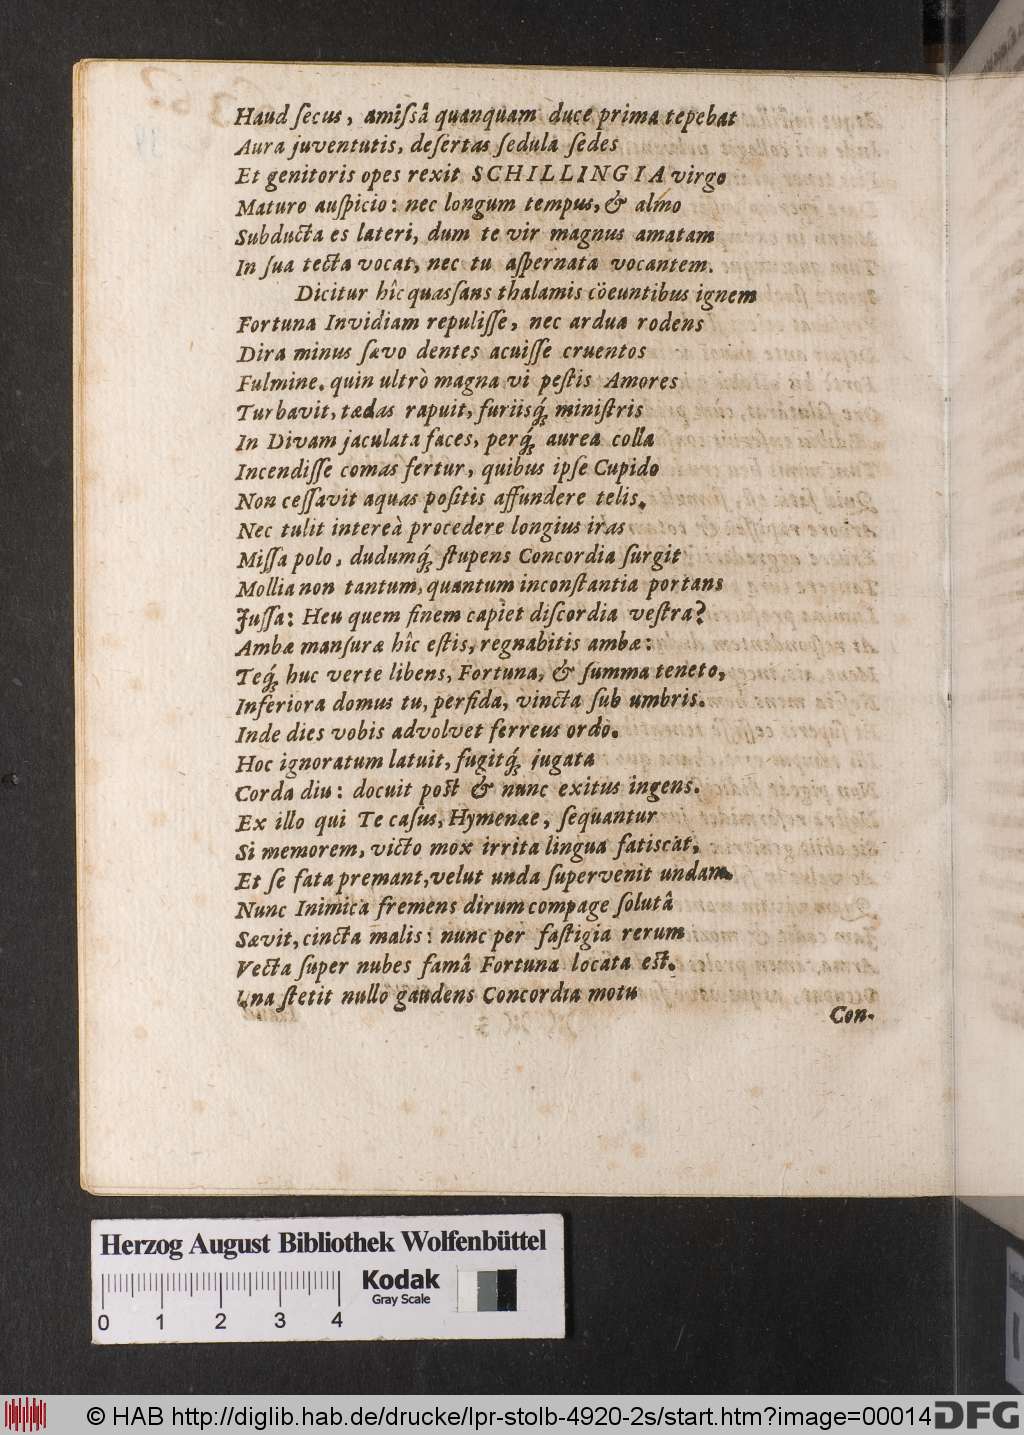 Haud ſecus, amiſsâ quanquam duce prima tepebat
Aura juventutis, deſertas ſedula ſedes
Et genitoris opes rexit SCHILLINGIA virgo
Maturo auſpicio: nec longum tempus, & almo
Subducta es lateri, dum te vir magnus amatam
In ſua tecta vocat, nec tu aſpernata vocantem.
Dicitur hîc quasſans thalamis cöeuntibus ignem
Fortuna Invidiam repuliſſe, nec ardua rodens
Dira minus ſævo dentes acuiſſe cruentos
Fulmine. quin ultrò magna vi peſtis Amores
Turbavit, tædas rapuit, furiisq́; miniſtris
In Divam jaculata faces, perq́; aurea colla
Incendiſſe comas fertur, quibus ipſe Cupido
Non ceſſavit aquas poſitis affundere telis.
Nec tulit intereà procedere longius iras
Miſſa polo, dudumq́; ſtupens Concordia ſurgit
Mollia non tantum, quantum inconſtantia portans
Juſſa: Heu quem finem capiet diſcordia veſtra?
Ambæ manſuræ hîc eſtis, regnabitis ambæ:
Teq́; huc verte libens, Fortuna, & ſumma teneto,
Inferiora domus tu, perfida, vincta ſub umbris.
Inde dies vobis advolvet ferreus ordo.
Hoc ignoratum latuit, fugitq́; jugata
Corda diu: docuit poſt & nunc exitus ingens.
Ex illo qui Te caſus, Hymenæe, ſequantur
Si memorem, victo mox irrita lingua fatiscat,
Et ſe fata premant, velut unda ſupervenit undam.
Nunc Inimica fremens dirum compage ſolutâ
Sævit, cincta malis: nunc per faſtigia rerum
Vecta ſuper nubes famâ Fortuna locata eſt.
Una ſtetit nullo gaudens Concordia motu
Con-
Herzog August Bibliothek Wolfenbüttel
Kodak
Gray Scale
0 1 2 3 4
© HAB http://diglib.hab.de/drucke/lpr-stolb-4920-2s/start.htm?image=00014
DFG